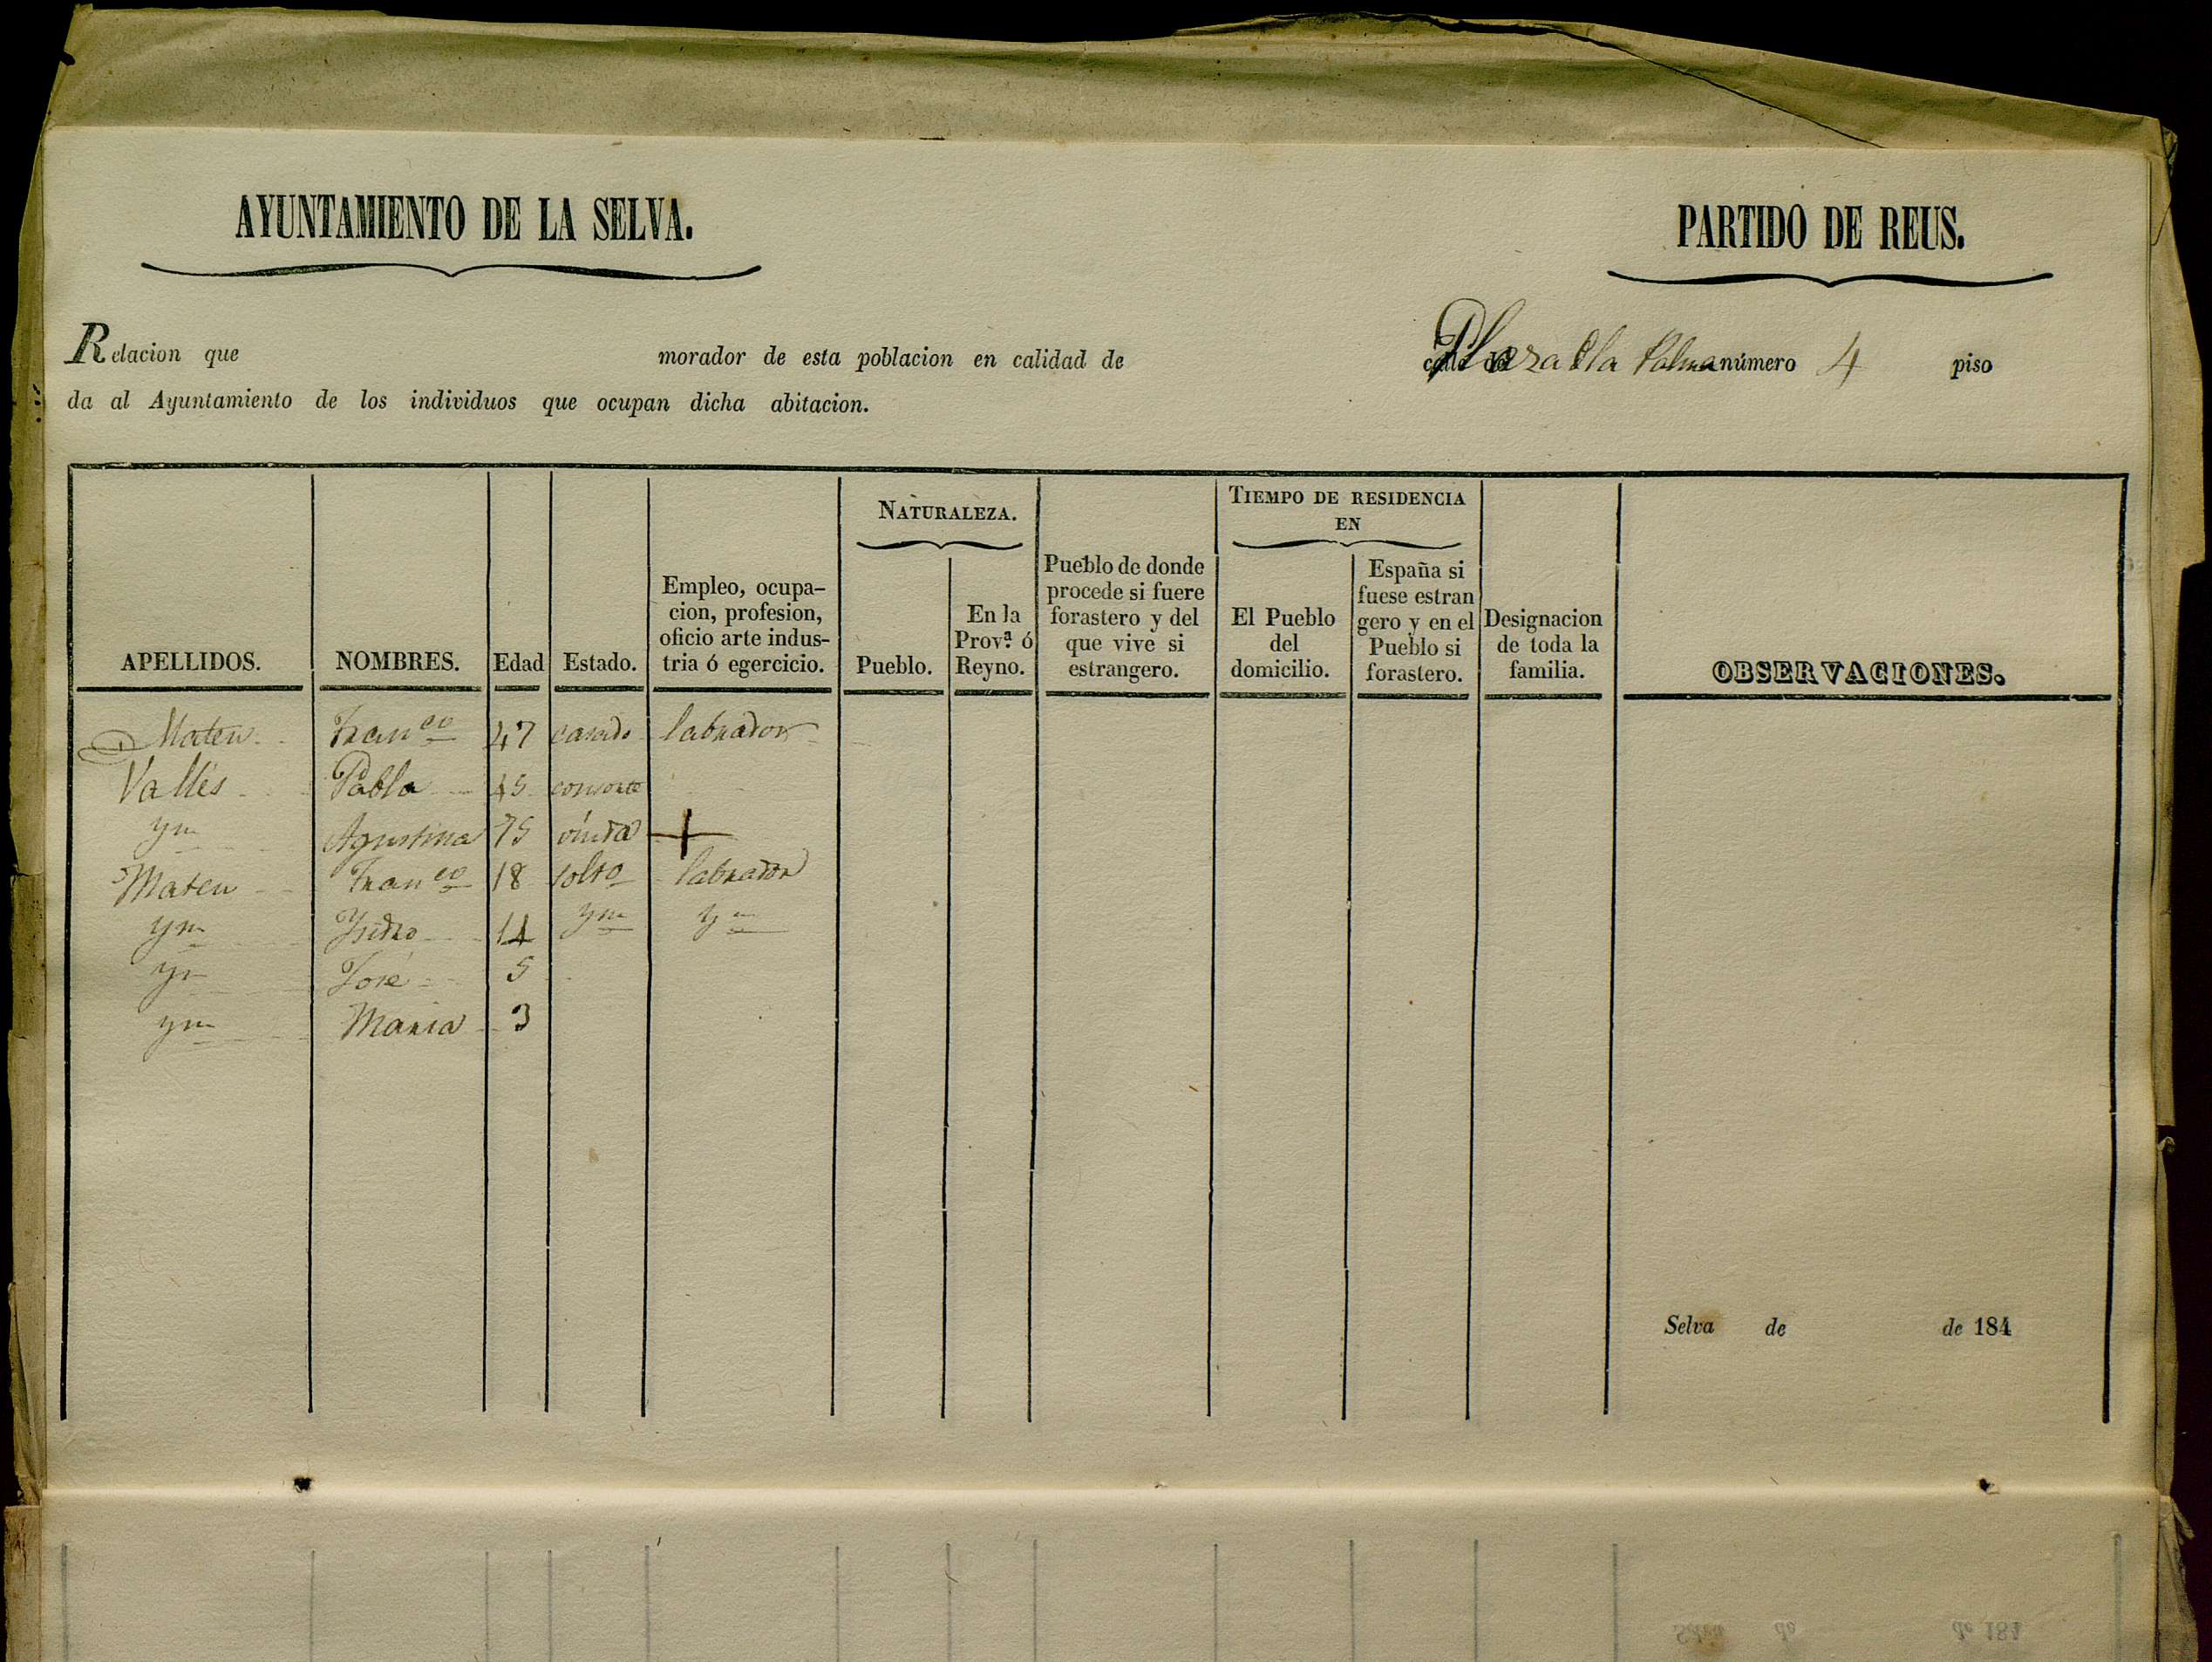 AYUNTAMIENTO DE LA SELVA.
PARTIDO DE REUS.
Relacion que morador de esta poblacion en calidad de calle de Plaza dla Palma número 4 piso
da al Ayuntamiento de los individuos que ocupan dicha abitacion.
APELLIDOS.
NOMBRES.
Edad
Estado.
Empleo, ocupa-
cion, profesion,
oficio arte indus-
tria ó egercicio.
NATURALEZA.
Pueblo.
En la
Prov.ª ó
Reyno.
Pueblo de donde
procede si fuere
forastero y del
que vive si
estrangero.
TIEMPO DE RESIDENCIA
EN
El Pueblo
del
domicilio.
España si
fuese estran
gero y en el
Pueblo si
forastero.
Designacion
de toda la
familia.
OBSERVACIONES.
Mateu Franco 47 casado labrador
Vallés Pabla 45 consorte
ym Agustina 75 viuda +
Mateu Franco 18 solto labrador
ym Ysidro 14 ym ym
ym José 5
ym Maria 3
Selva de de 184